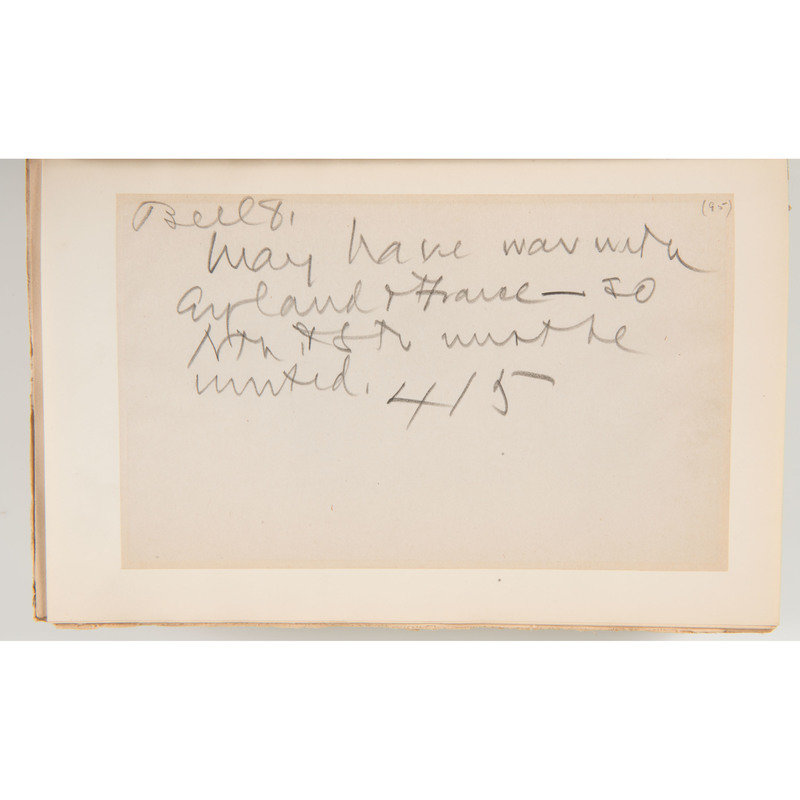 (95)
Bell 8.
May have war with
England & France — so
Nth & Sth must be
united. 4/5